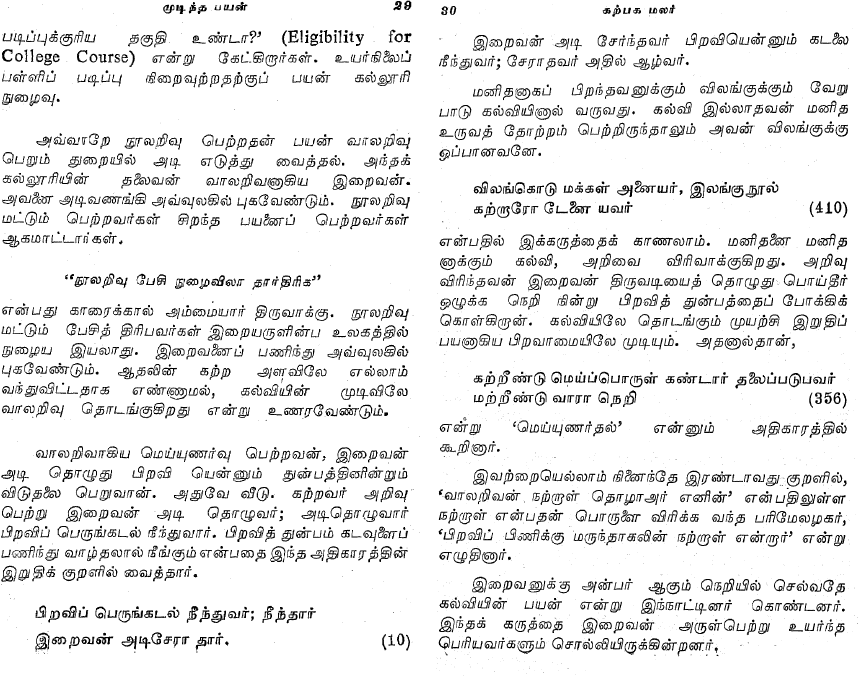 முடிந்த பயன் 29
படிப்புக்குரிய தகுதி உண்டா?' (Eligibility for
College Course) என்று கேட்கிறார்கள். உயர்நிலைப்
பள்ளிப் படிப்பு நிறைவுற்றதற்குப் பயன் கல்லூரி
நுழைவு.
அவ்வாறே நூலறிவு பெற்றதன் பயன் வாலறிவு
பெறும் துறையில் அடி எடுத்து வைத்தல். அந்தக்
கல்லூரியின் தலைவன் வாலறிவனாகிய இறைவன்.
அவனை அடிவணங்கி அவ்வுலகில் புகவேண்டும். நூலறிவு
மட்டும் பெற்றவர்கள் சிறந்த பயனைப் பெற்றவர்கள்
ஆகமாட்டார்கள்.
"நூலறிவு பேசி நுழைவிலா தார்திரிக"
என்பது காரைக்கால் அம்மையார் திருவாக்கு. நூலறிவு
மட்டும் பேசித் திரிபவர்கள் இறையருளின்ப உலகத்தில்
நுழைய இயலாது. இறைவனைப் பணிந்து அவ்வுலகில்
புகவேண்டும். ஆதலின் கற்ற அளவிலே எல்லாம்
வந்துவிட்டதாக எண்ணாமல், கல்வியின் முடிவிலே
வாலறிவு தொடங்குகிறது என்று உணரவேண்டும்.
வாலறிவாகிய மெய்யுணர்வு பெற்றவன், இறைவன்
அடி தொழுது பிறவி யென்னும் துன்பத்தினின்றும்
விடுதலை பெறுவான். அதுவே வீடு. கற்றவர் அறிவு
பெற்று இறைவன் அடி தொழுவர்; அடிதொழுவார்
பிறவிப் பெருங்கடல் நீந்துவார். பிறவித் துன்பம் கடவுளைப்
பணிந்து வாழ்தலால் நீங்கும் என்பதை இந்த அதிகாரத்தின்
இறுதிக் குறளில் வைத்தார்.
பிறவிப் பெருங்கடல் நீந்துவர்; நீந்தார்
இறைவன் அடிசேரா தார். (10)
30 கற்பக மலர்
இறைவன் அடி சேர்ந்தவர் பிறவியென்னும் கடலை
நீந்துவர்; சேராதவர் அதில் ஆழ்வர்.
மனிதனாகப் பிறந்தவனுக்கும் விலங்குக்கும் வேறு
பாடு கல்வியினால் வருவது. கல்வி இல்லாதவன் மனித
உருவத் தோற்றம் பெற்றிருந்தாலும் அவன் விலங்குக்கு
ஒப்பானவனே.
விலங்கொடு மக்கள் அனையர், இலங்குநூல்
கற்றாரோ டேனை யவர் (410)
என்பதில் இக்கருத்தைக் காணலாம். மனிதனை மனித
னாக்கும் கல்வி, அறிவை விரிவாக்குகிறது. அறிவு
விரிந்தவன் இறைவன் திருவடியைத் தொழுது பொய்தீர்
ஒழுக்க நெறி நின்று பிறவித் துன்பத்தைப் போக்கிக்
கொள்கிறான். கல்வியிலே தொடங்கும் முயற்சி இறுதிப்
பயனாகிய பிறவாமையிலே முடியும். அதனால்தான்,
கற்றீண்டு மெய்ப்பொருள் கண்டார் தலைப்படுபவர்
மற்றீண்டு வாரா நெறி (356)
என்று 'மெய்யுணர்தல்' என்னும் அதிகாரத்தில்
கூறினார்.
இவற்றையெல்லாம் நினைந்தே இரண்டாவது குறளில்,
'வாலறிவன் நற்றாள் தொழாஅர் எனின்' என்பதிலுள்ள
நற்றாள் என்பதன் பொருளை விரிக்க வந்த பரிமேலழகர்,
'பிறவிப் பிணிக்கு மருந்தாகலின் நற்றாள் என்றார்' என்று
எழுதினார்.
இறைவனுக்கு அன்பர் ஆகும் நெறியில் செல்வதே
கல்வியின் பயன் என்று இந்நாட்டினர் கொண்டனர்.
இந்தக் கருத்தை இறைவன் அருள்பெற்று உயர்ந்த
பெரியவர்களும் சொல்லியிருக்கின்றனர்.